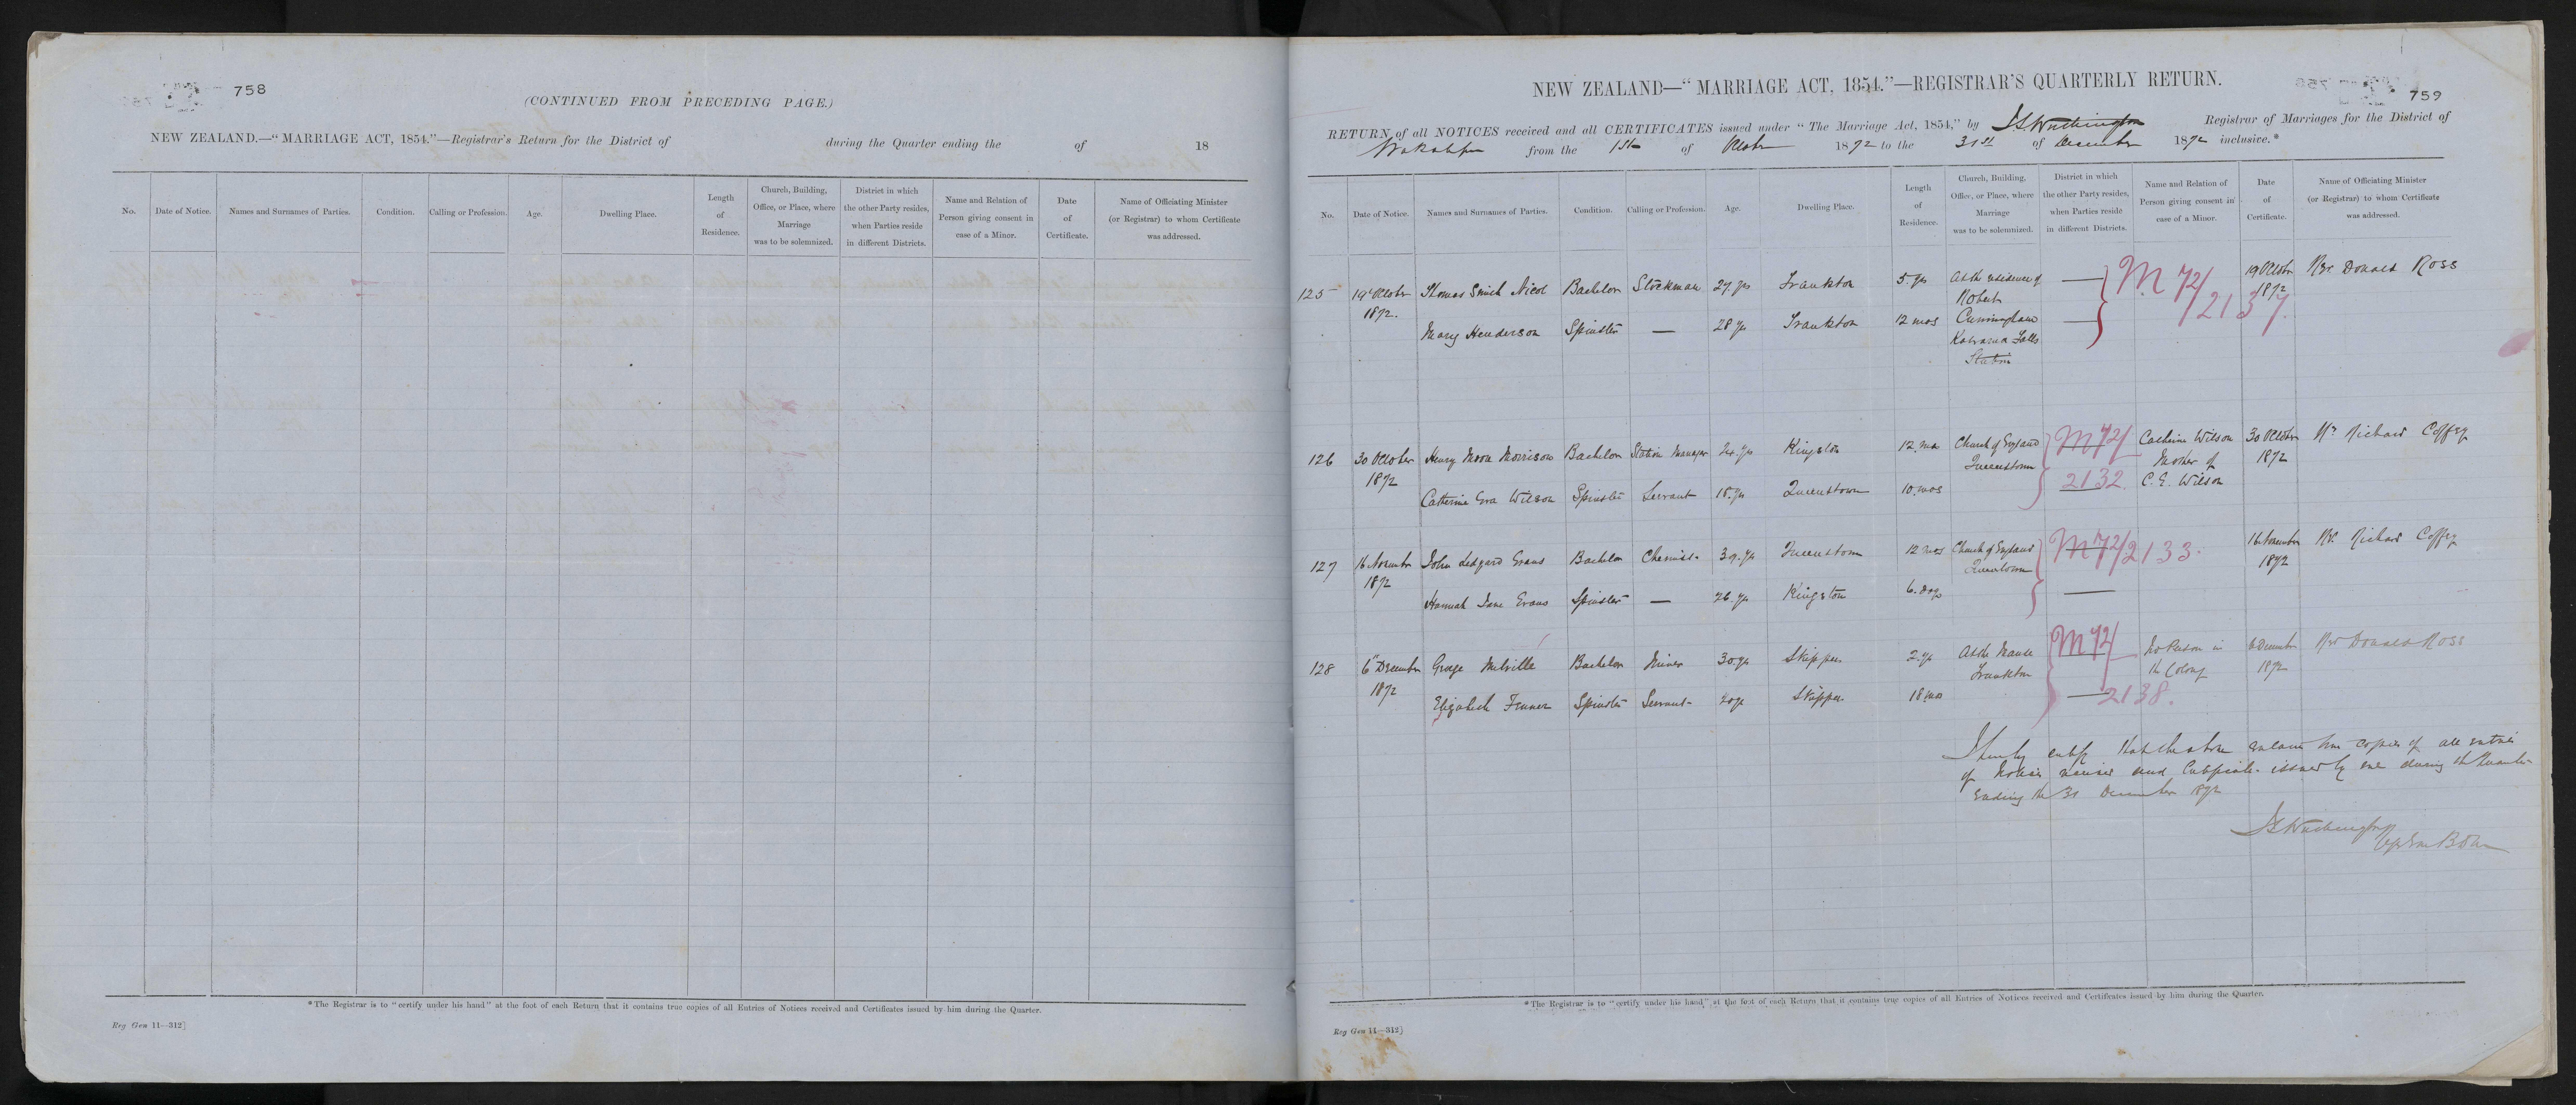 758
(CONTINUED FROM PRECEDING PAGE.)
NEW ZEALAND.—"MARRIAGE ACT, 1854."—Registrar's Return for the District of during the Quarter ending the of 18
No. Date of Notice. Names and Surnames of Parties. Condition. Calling or Profession. Age. Dwelling Place. Length of Residence. Church, Building, Office, or Place, where Marriage was to be solemnized. District in which the other Party resides, when Parties reside in different Districts. Name and Relation of Person giving consent in case of a Minor. Date of Certificate. Name of Officiating Minister (or Registrar) to whom Certificate was addressed.
*The Registrar is to "certify under his hand" at the foot of each Return that it contains true copies of all Entries of Notices received and Certificates issued by him during the Quarter.
Reg Gen 11—312]
NEW ZEALAND—"MARRIAGE ACT, 1854."—REGISTRAR'S QUARTERLY RETURN.
759
RETURN of all NOTICES received and all CERTIFICATES issued under "The Marriage Act, 1854," by Registrar of Marriages for the District of
Wakatipu from the 1st of October 1872 to the 31st of December 1872 inclusive.*
No. Date of Notice. Names and Surnames of Parties. Condition. Calling or Profession. Age. Dwelling Place. Length of Residence. Church, Building, Office, or Place, where Marriage was to be solemnized. District in which the other Party resides, when Parties reside in different Districts. Name and Relation of Person giving consent in case of a Minor. Date of Certificate. Name of Officiating Minister (or Registrar) to whom Certificate was addressed.
125 19 October 1872. Thomas Smith Nicol Bachelor Stockman 27. yrs Frankton 5. yrs At the residence of Robert Cunningham Kawarau Falls Station — M 72/2137. 19 October 1872 Rev. Donald Ross
Mary Henderson Spinster — 28 yrs Frankton 12 mos —
126 30 October 1872 Henry Moon Morrison Bachelor Station Manager 24. yrs Kingston 12. mos Church of England Queenstown M 72/2132. Catherine Wilson Mother of C. E. Wilson 30 October 1872 Rev. Richard Coffey
Catherine Eva Wilson Spinster Servant 18. yrs Queenstown 10. mos
127 16 November 1872 John Ledgard Evans Bachelor Chemist 39. yrs Queenstown 12 mos Church of England Queenstown M 72/2133. 16 November 1872 Rev. Richard Coffey
Hannah Jane Evans Spinster — 26. yrs Kingston 6. days —
128 6th December 1872 George Melville Bachelor Miner 30 yrs Skippers 2. yrs At the Manse Frankton M 72/2138. No Person in the Colony 6 December 1872 Rev Donald Ross
Elizabeth Fenner Spinster Servant 20 yrs Skippers 18 mos —
I hereby certify that the above contains true copies of all entries
of Notices received and Certificates issued by me during the Quarter
ending the 31 December 1872
*The Registrar is to "certify under his hand" at the foot of each Return that it contains true copies of all Entries of Notices received and Certificates issued by him during the Quarter.
Reg Gen 11—312]